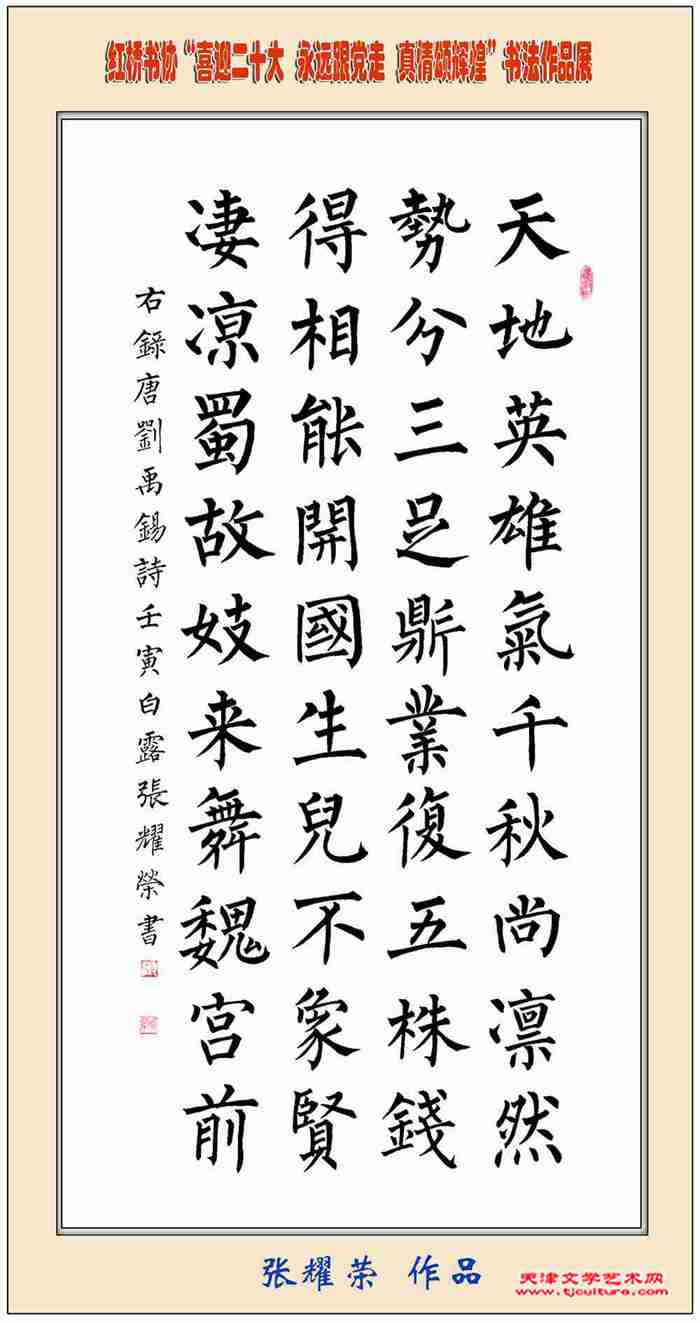 红桥书协“喜迎二十大 永远跟党走 真情颂辉煌”书法作品展
天地英雄氣千秋尚凛然
勢分三足鼎業復五株錢
得相能開國生兒不象賢
凄凉蜀故妓来舞魏宫前
右錄唐劉禹錫詩壬寅白露張耀榮書
张耀荣 作品
天津文学艺术网
www.tjculture.com